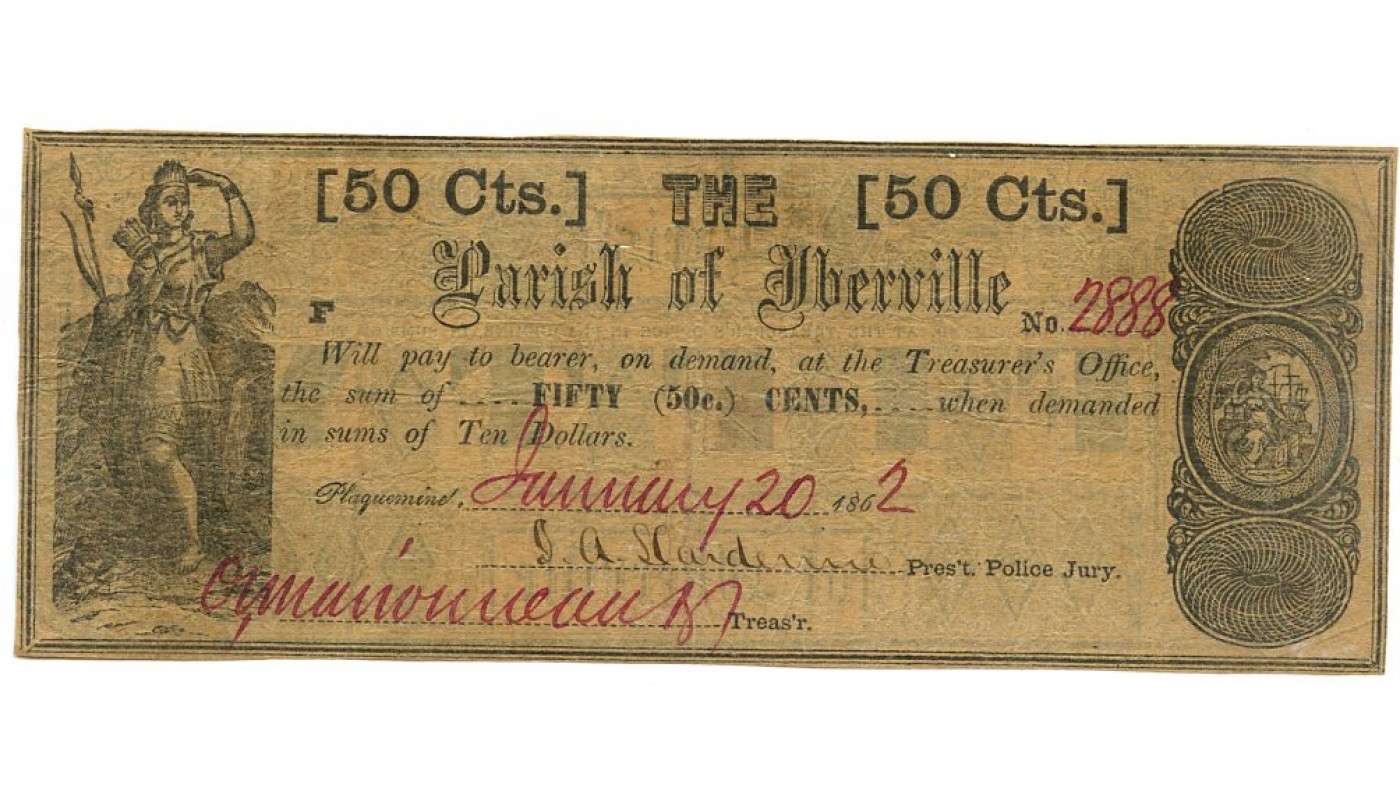 [50 Cts.] THE [50 Cts.]
Parish of Iberville
F No. 2888
Will pay to bearer, on demand, at the Treasurer's Office,
the sum of .... FIFTY (50c.) CENTS, .... when demanded
in sums of Ten Dollars.
Plaquemine, January 20 1862
Pres't. Police Jury.
Treas'r.